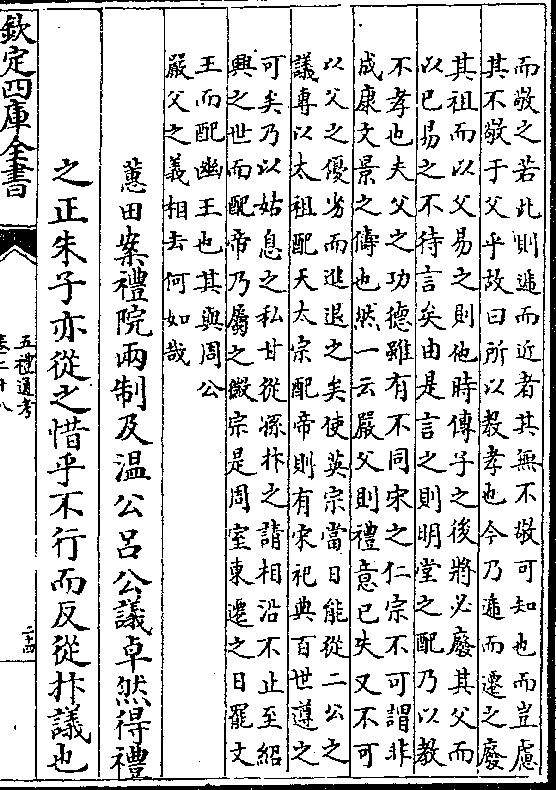 而敬之若此則遞而近者其無不敬可知也而豈慮
其不敬于父乎故曰所以教孝也今乃遞而遷之廢
其祖而以父易之則他時傳子之後將必廢其父而
以已易之不待言矣由是言之則明堂之配乃以教
不孝也夫父之功德雖有不同宋之仁宗不可謂非
成康文景之儔也然一云嚴父則禮意已失又不可
以父之優劣而進退之矣使英宗當日能從二公之
議專以太祖配天太宗配帝則有宋祀典百世遵之
可矣乃以姑息之私甘從孫抃之請相沿不止至紹
興之世而配帝乃屬之徽宗是周室東遷之日罷文
王而配幽王也其與周公
嚴父之義相去何如哉
蕙田案禮院兩制及温公呂公議卓然得禮
之正朱子亦從之惜乎不行而反從抃議也
欽定四庫全書
五禮通考
卷二十八
二十四